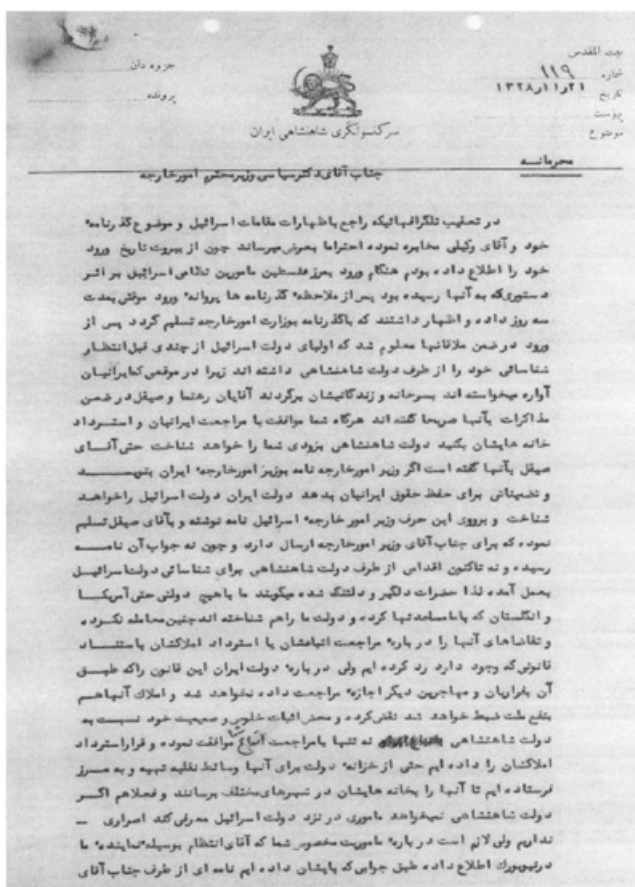 بیت المقدس
شماره ۱۱۹
تاریخ ۲۱ر۱۱ر۱۳۲۸
پیوست
موضوع
جزوه دان
پرونده
سرکنسولگری شاهنشاهی ایران
محرمانه
جناب آقای دکتر سیاسی وزیر محترم امور خارجه
در تعقیب تلگرافهائیکه راجع باظهارات مقامات اسرائیل و موضوع گذرنامه
خود و آقای وکیلی مخابره نموده احتراما بعرض میرساند چون از بیروت تاریخ ورود
خود را اطلاع داده بودم هنگام ورود بمرز فلسطین مامورین نظامی اسرائیل بر اثر
دستوریکه به آنها رسیده بود پس از ملاحظه گذرنامه ها پروانه ورود موقتی بمدت
سه روز داده و اظهار داشتند که باگذرنامه بوزارت امورخارجه تسلیم گردد پس از
ورود در ضمن ملاقاتها معلوم شد که اولیای دولت اسرائیل از چندی قبل انتظار
شناسائی خود را از طرف دولت شاهنشاهی داشته اند زیرا در موقعی که ایرانیان
آواره میخواسته اند بسرخانه و زندگانیشان برگردند آقایان رهنما و صیقل در ضمن
مذاکرات بآنها صریحا گفته اند هرگاه شما موافقت با مراجعت ایرانیان و استرداد
خانه هایشان بکنید دولت شاهنشاهی بزودی شما را خواهد شناخت حتی آقای
صیقل بآنها گفته است اگر وزیر امورخارجه نامه بوزیر امورخارجه ایران بنویسد
و تضمیناتی برای حفظ حقوق ایرانیان بدهد دولت ایران دولت اسرائیل راخواهد
شناخت و برروی این حرف وزیر امور خارجه اسرائیل نامه نوشته و بآقای صیقل تسلیم
نموده که برای جناب آقای وزیر امورخارجه ارسال دارد و چون نه جواب آن نامه
رسیده و نه تاکنون اقدامی از طرف دولت شاهنشاهی برای شناسائی دولت اسرائیل
بعمل آمده لذا حضرات دلگیر و دلتنگ شده میگویند ما باهیچ دولتی حتی آمریکا
و انگلستان که بامامساعدتها کرده و دولت ما را هم شناخته اند چنین معامله نکرده
و تقاضاهای آنها را در باره مراجعت اتباعشان یا استرداد املاکشان باستناد
قانونی که وجود دارد رد کرده ایم ولی در باره دولت ایران این قانون راکه طبق
آن بفراریان و مهاجرین دیگر اجازه مراجعت داده نخواهد شد و املاک آنهاهم
بنفع ملت ضبط خواهد شد نقض کرده و محض اثبات خلوص و صمیمیت خود نسبت به
دولت شاهنشاهی نه تنها بامراجعت اتباع شما موافقت نموده و قرار استرداد
املاکشان را داده ایم حتی از خزانه دولت برای آنها وسائط نقلیه تهیه و به مرز
فرستاده ایم تا آنها را بخانه هایشان در شهرهای مختلف برسانند و فعلا هم اگر
دولت شاهنشاهی نمیخواهد ماموری در نزد دولت اسرائیل معرفی کند اصراری -
نداریم ولی لازم است در باره ماموریت مخصوص شما که آقای انتظام بوسیله نماینده ما
در نیویورک اطلاع داده طبق جوابی که بایشان داده ایم نامه ای از طرف جناب آقای